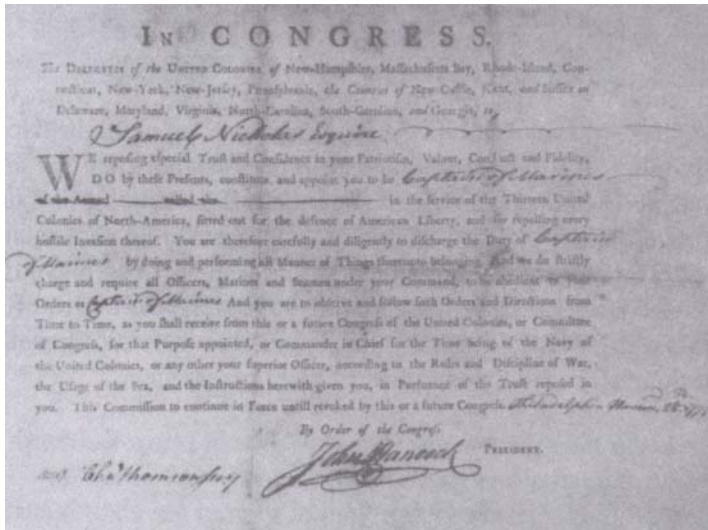 IN CONGRESS.
The DELEGATES of the UNITED COLONIES of New-Hampshire, Massachusetts Bay, Rhode-Island, Con-
necticut, New-York, New-Jersey, Pennsylvania, the Counties of New-Castle, Kent, and Sussex on
Delaware, Maryland, Virginia, North-Carolina, South-Carolina, and Georgia, to
Samuel Nicholas Esquire
WE reposing especial Trust and Confidence in your Patriotism, Valour, Conduct and Fidelity,
DO by these Presents, constitute and appoint you to be Captain of Marines
of the Armed called the in the service of the Thirteen United
Colonies of North-America, fitted out for the defence of American Liberty, and for repelling every
hostile Invasion thereof. You are therefore carefully and diligently to discharge the Duty of Captain
of Marines by doing and performing all Manner of Things thereunto belonging. And we do strictly
charge and require all Officers, Marines and Seamen under your Command, to be obedient to your
Orders as Captain of Marines And you are to observe and follow such Orders and Directions from
Time to Time, as you shall receive from this or a future Congress of the United Colonies, or Committee
of Congress, for that Purpose appointed, or Commander in Chief for the Time being of the Navy of
the United Colonies, or any other your superior Officer, according to the Rules and Discipline of War,
the Usage of the Sea, and the Instructions herewith given you, in Pursuance of the Trust reposed in
you. This Commission to continue in Force untill revoked by this or a future Congress. Philadelphia 28th
By Order of the Congress
John Hancock PRESIDENT.
Attest Cha Thomson secy